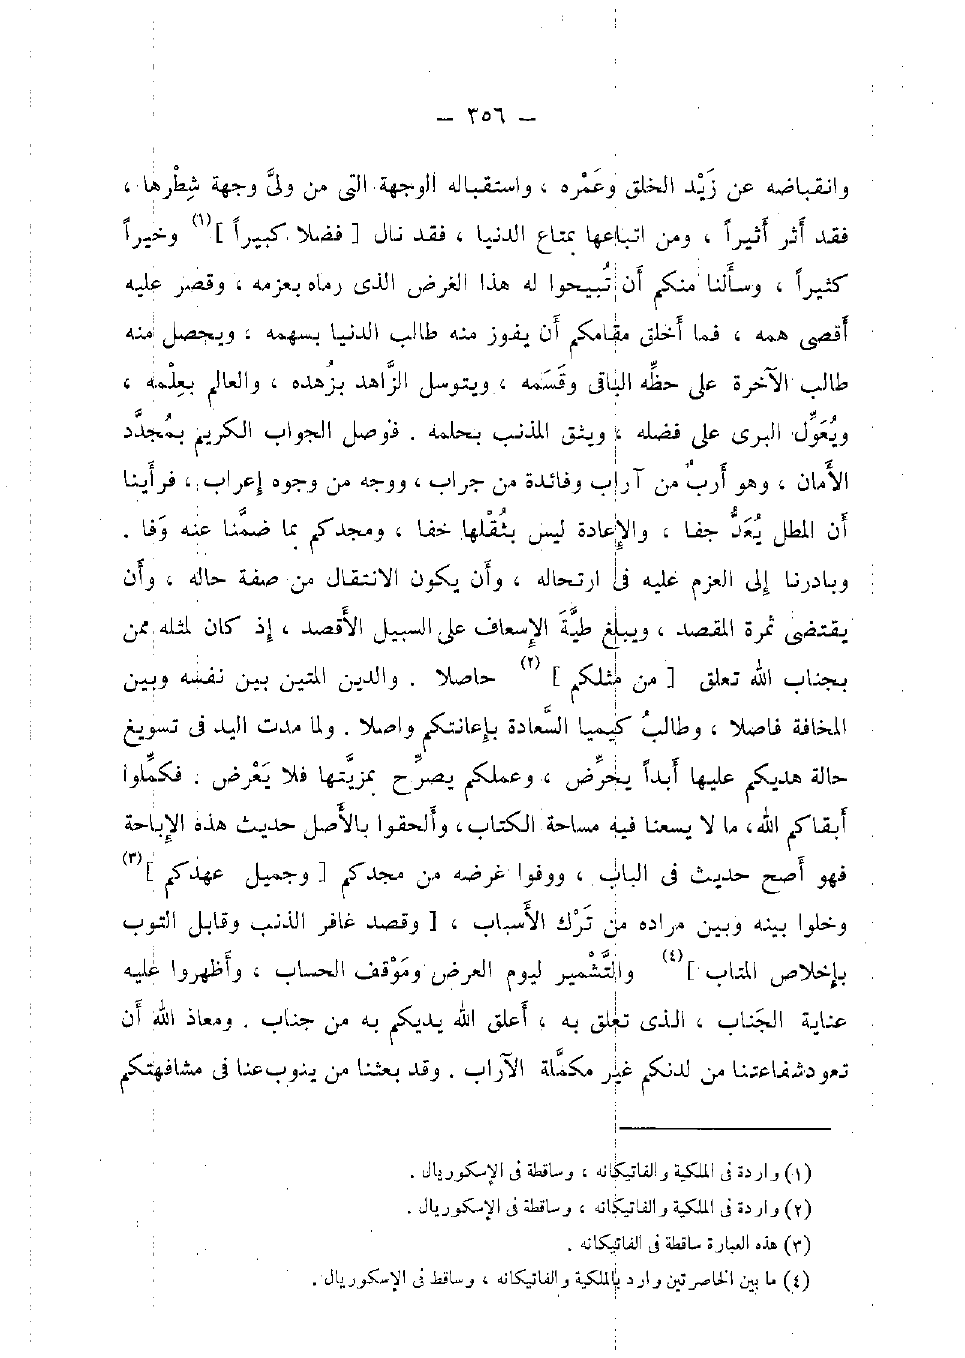 — ٣٥٦ —
وانقباضه عن زَيْد الخلق وعَمْره ، واستقباله الوجهة التى من ولىَّ وجهة شِطْرها ،
فقد أثر أَثيراً ، ومن اتباعها بمتاع الدنيا ، فقد نال [ فضلا كبيراً ](١) وخيراً
كثيراً ، وسأَلنا منكم أَن تُبيحوا له هذا الغرض الذى رماه بعزمه ، وقصر عليه
أَقصى همه ، فما أَخلق مقامكم أَن يفوز منه طالب الدنيا بسهمه ، ويحصل منه
طالب الآخرة على حظِّه الباقى وقَسَمه ، ويتوسل الزَّاهد بزُهده ، والعالم بعِلْمه ،
ويُعَوِّل البرى على فضله ، ويثق المذنب بحلمه . فوصل الجواب الكريم بمُجدَّد
الأَمان ، وهو أَربٌ من آراب وفائدة من جراب ، ووجه من وجوه إعراب ، فرأَينا
أَن المطل يُعَدُّ جفا ، والإعادة ليس بثُقْلها خفا ، ومجدكم بما ضمَّنا عنه وَفا .
وبادرنا إلى العزم عليه فى ارتحاله ، وأَن يكون الانتقال من صفة حاله ، وأَن
يقتضى ثمرة المقصد ، ويبلغ طيَّةَ الإسعاف على السبيل الأَقصد ، إذ كان لمثله ممن
بجناب الله تعلق [ من مثلكم ](٢) حاصلا . والدين المتين بين نفسه وبين
المخافة فاصلا ، وطالبُ كيميا السَّعادة بإعانتكم واصلا . ولما مدت اليد فى تسويغ
حالة هديكم عليها أَبداً يحَرِّض ، وعملكم يصرِّح بمزيَّتها فلا يَعْرض . فكمِّلوا
أَبقاكم الله، ما لا يسعنا فيه مساحة الكتاب، وأَلحقوا بالأَصل حديث هذه الإباحة
فهو أَصح حديث فى الباب ، ووفوا غرضه من مجدكم [ وجميل عهدكم ](٣)
وخلوا بينه وبين مراده من تَرْك الأَسباب ، [ وقصد غافر الذنب وقابل التوب
بإخلاص المتاب ](٤) والتَّشْمير ليوم العرض ومَوْقف الحساب ، وأَظهروا عليه
عناية الجَناب ، الذى تعلق به ، أَعلق الله يديكم به من جناب . ومعاذ الله أَن
تعود شفاعتنا من لدنكم غير مكمَّلة الآراب . وقد بعثنا من ينوب عنا فى مشافهتكم
(١) واردة فى الملكية والفاتيكانه ، وساقطة فى الإسكوريال .
(٢) واردة فى الملكية والفاتيكانه ، وساقطة فى الإسكوريال .
(٣) هذه العبارة ساقطة فى الفاتيكانه .
(٤) ما بين الخاصرتين وارد بالملكية والفاتيكانه ، وساقط فى الإسكوريال .